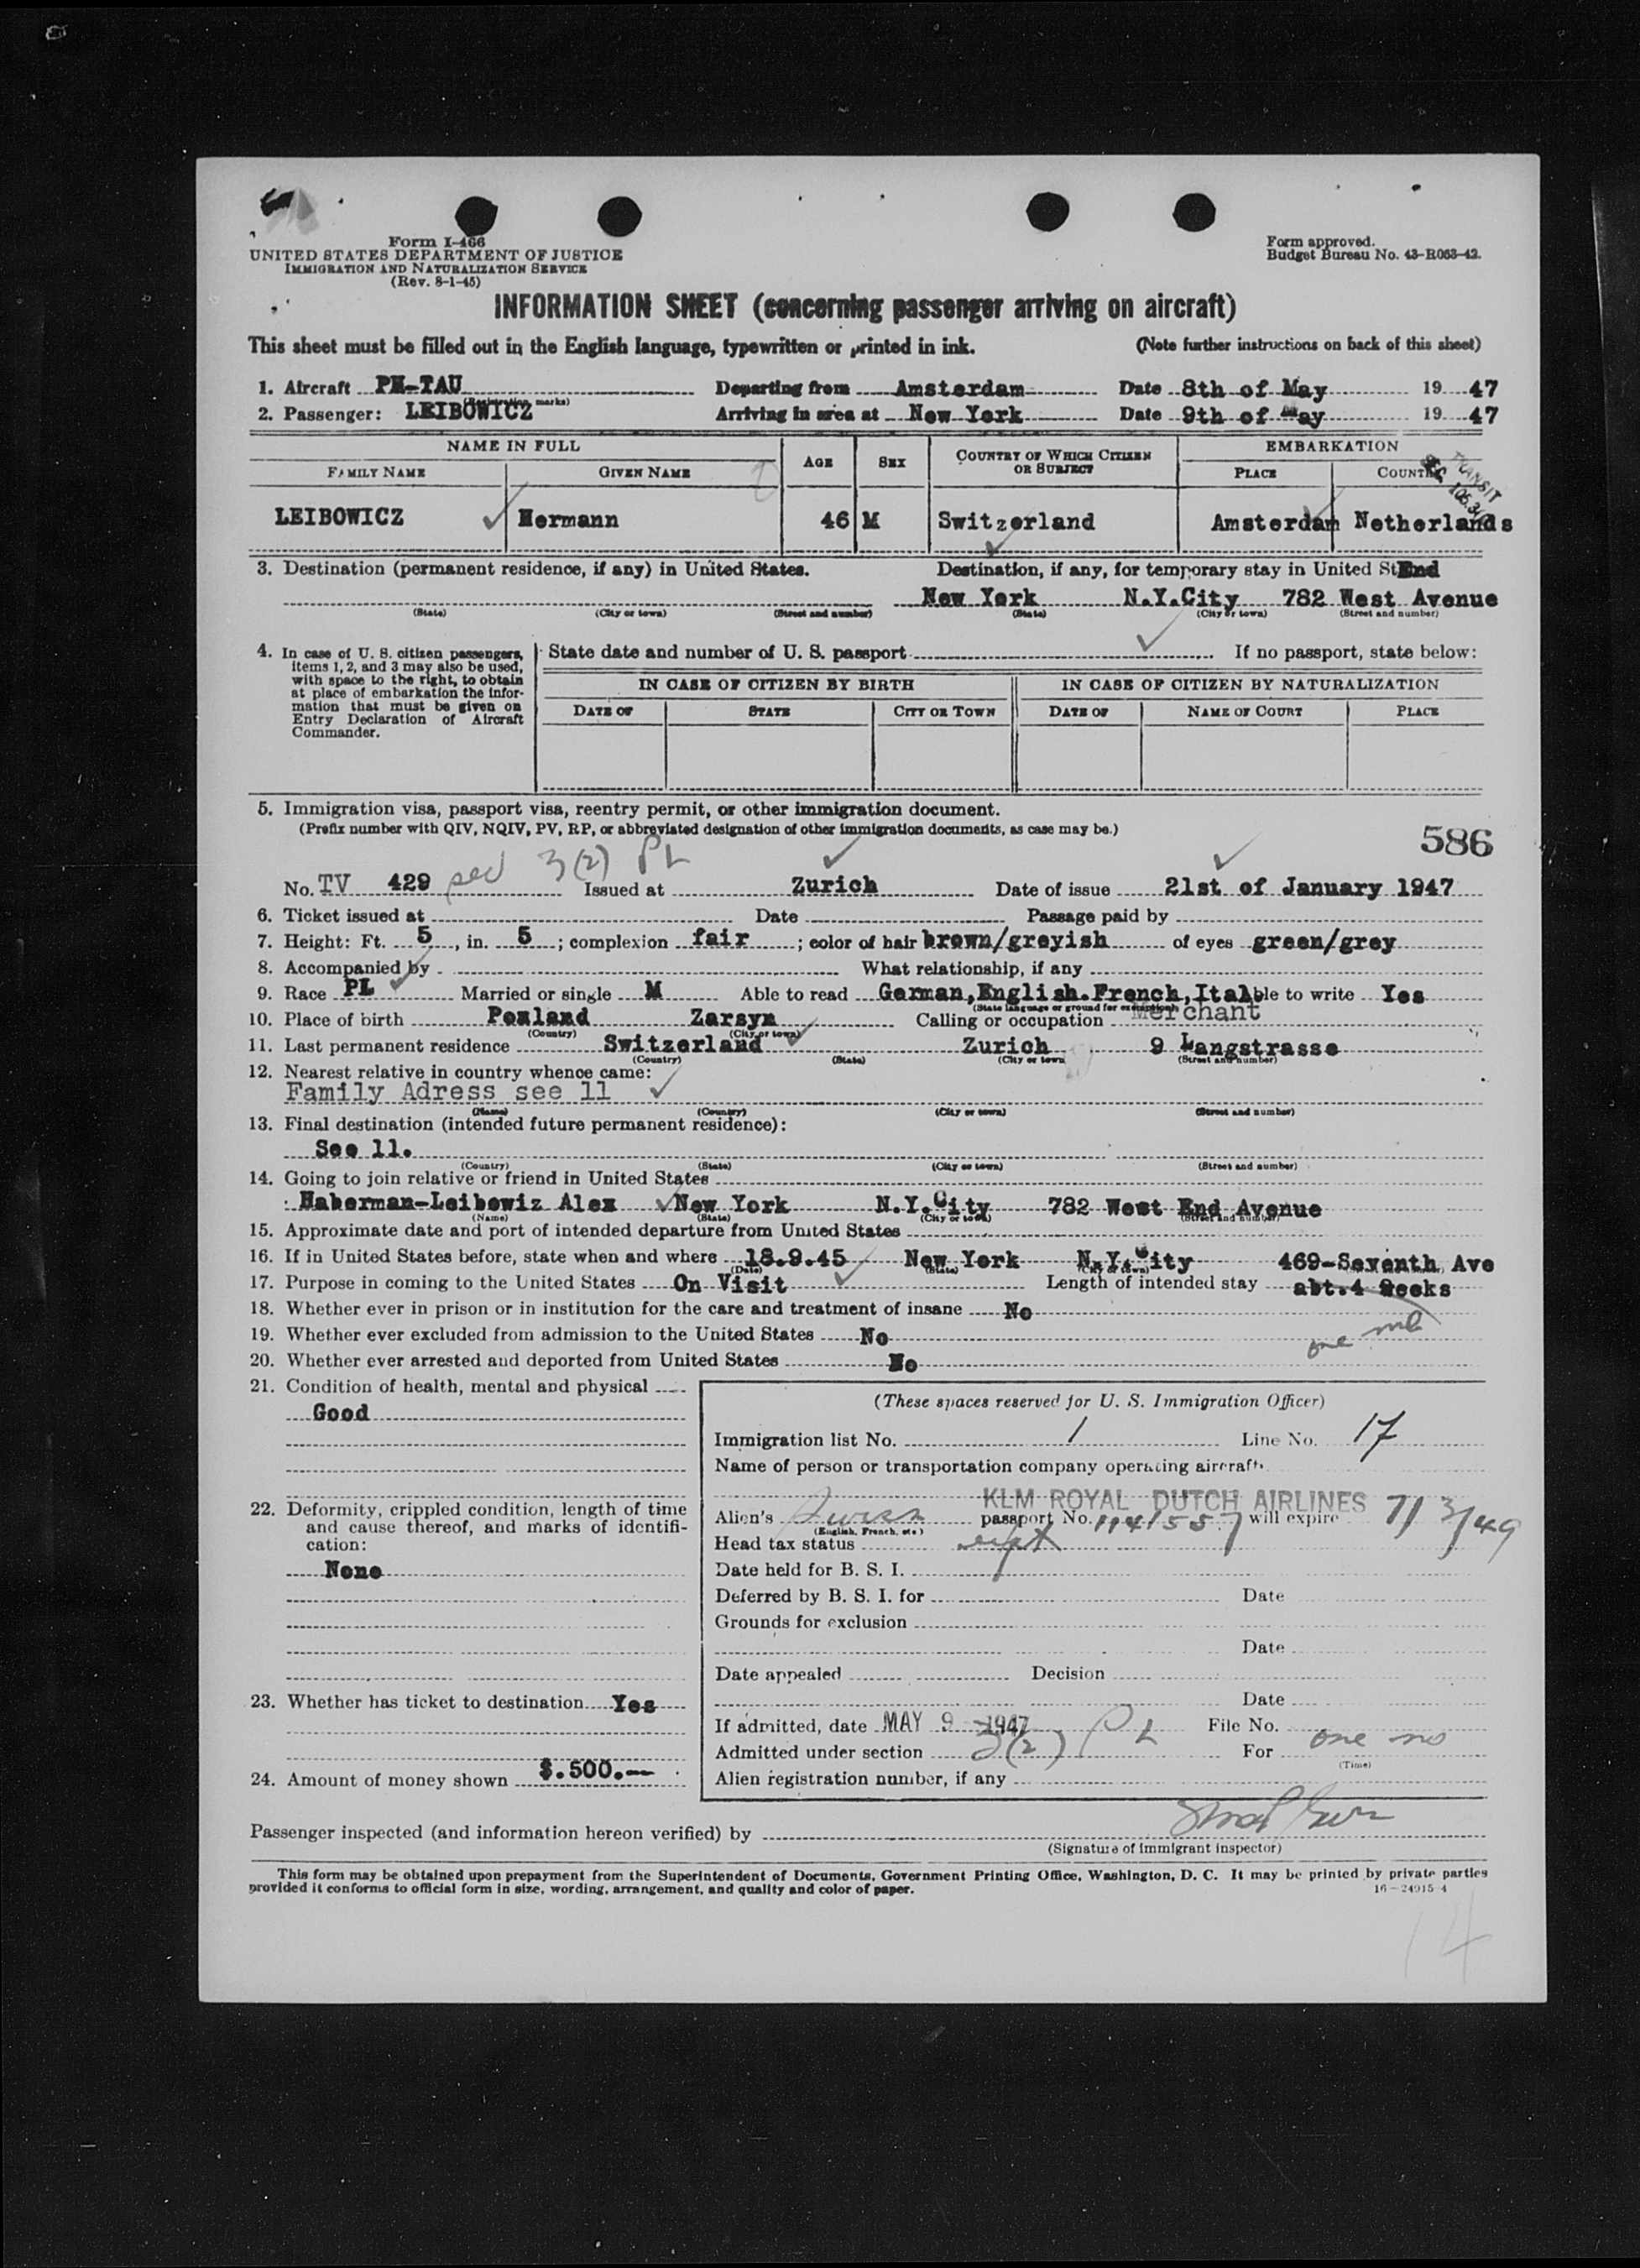 Form I-466
UNITED STATES DEPARTMENT OF JUSTICE
IMMIGRATION AND NATURALIZATION SERVICE
(Rev. 8-1-45)
Form approved.
Budget Bureau No. 43-R063-42.
INFORMATION SHEET (concerning passenger arriving on aircraft)
This sheet must be filled out in the English language, typewritten or printed in ink. (Note further instructions on back of this sheet)
1. Aircraft PH-TAU Departing from Amsterdam Date 8th of May 19 47
(Registration marks)
2. Passenger: LEIBOWICZ Arriving in area at New York Date 9th of May 19 47
NAME IN FULL AGE SEX COUNTRY OF WHICH CITIZEN OR SUBJECT EMBARKATION
FAMILY NAME GIVEN NAME PLACE COUNTRY
TRANSIT
LEIBOWICZ Hermann 46 M Switzerland Amsterdam Netherlands
3. Destination (permanent residence, if any) in United States. Destination, if any, for temporary stay in United St End
New York N.Y.City 782 West Avenue
(State) (City or town) (Street and number) (State) (City or town) (Street and number)
4. In case of U. S. citizen passengers, items 1, 2, and 3 may also be used, with space to the right, to obtain at place of embarkation the information that must be given on Entry Declaration of Aircraft Commander.
State date and number of U. S. passport If no passport, state below:
IN CASE OF CITIZEN BY BIRTH IN CASE OF CITIZEN BY NATURALIZATION
DATE OF STATE CITY OR TOWN DATE OF NAME OF COURT PLACE
5. Immigration visa, passport visa, reentry permit, or other immigration document.
(Prefix number with QIV, NQIV, PV, RP, or abbreviated designation of other immigration documents, as case may be.)
586
No. TV 429 sec 3(2) PL Issued at Zurich Date of issue 21st of January 1947
6. Ticket issued at Date Passage paid by
7. Height: Ft. 5, in. 5; complexion fair; color of hair brown/greyish of eyes green/grey
8. Accompanied by What relationship, if any
9. Race PL Married or single M Able to read German,English.French,Ital ble to write Yes
(State language or ground for exemption)
10. Place of birth Poland Zarsyn Calling or occupation Merchant
(Country) (City or town)
11. Last permanent residence Switzerland Zurich 9 Langstrasse
(Country) (State) (City or town) (Street and number)
12. Nearest relative in country whence came:
Family Adress see 11
(Name) (Country) (City or town) (Street and number)
13. Final destination (intended future permanent residence):
See 11.
(Country) (State) (City or town) (Street and number)
14. Going to join relative or friend in United States
Haberman-Leibowiz Alex New York N.Y.City 782 West End Avenue
(Name) (State) (City or town) (Street and number)
15. Approximate date and port of intended departure from United States
16. If in United States before, state when and where 18.9.45 New York N.Y.City 469-Seventh Ave
(Date) (State) (City or town)
17. Purpose in coming to the United States On Visit Length of intended stay abt.4 Weeks
18. Whether ever in prison or in institution for the care and treatment of insane No
19. Whether ever excluded from admission to the United States No
one mo
20. Whether ever arrested and deported from United States No
21. Condition of health, mental and physical
Good
22. Deformity, crippled condition, length of time and cause thereof, and marks of identification:
None
23. Whether has ticket to destination Yes
24. Amount of money shown $.500.--
(These spaces reserved for U. S. Immigration Officer)
Immigration list No. 1 Line No. 17
Name of person or transportation company operating aircraft
KLM ROYAL DUTCH AIRLINES
Alien's Swiss passport No. 1141557 will expire 7/3/49
(English, French, etc.)
Head tax status
Date held for B. S. I.
Deferred by B. S. I. for Date
Grounds for exclusion
Date
Date appealed Decision
Date
If admitted, date MAY 9 1947 File No.
Admitted under section 3(2) PL For one mo
(Time)
Alien registration number, if any
Passenger inspected (and information hereon verified) by
(Signature of immigrant inspector)
This form may be obtained upon prepayment from the Superintendent of Documents, Government Printing Office, Washington, D. C. It may be printed by private parties
provided it conforms to official form in size, wording, arrangement, and quality and color of paper. 16-24915-4
14